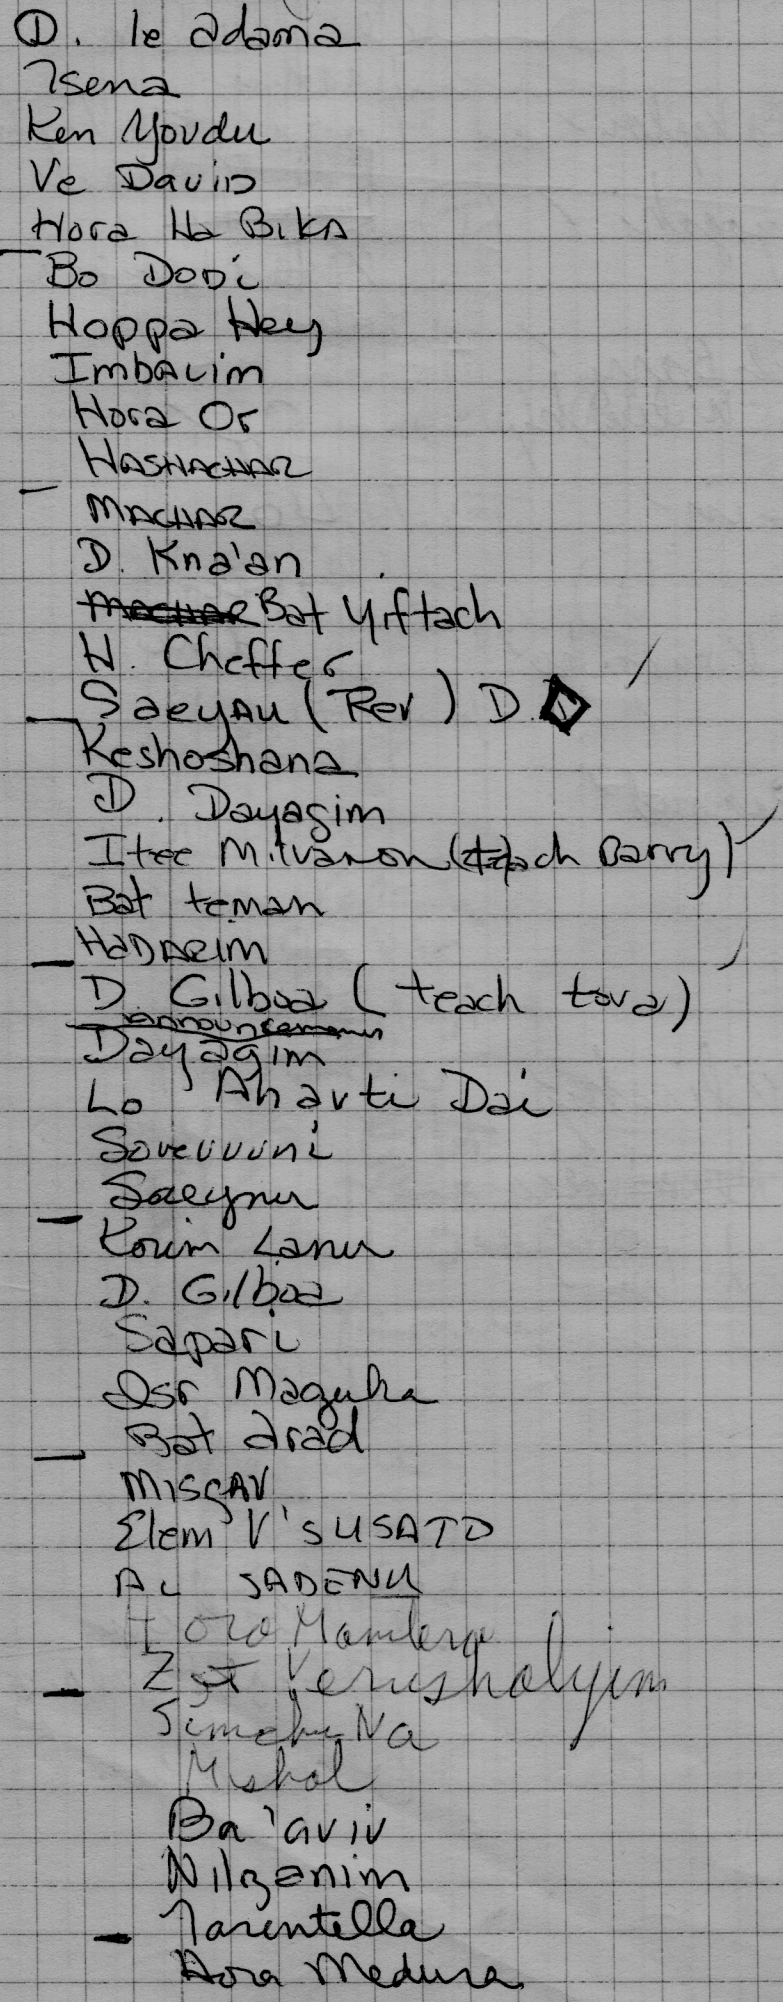 D. le adama
Tsena
Ken Yovdu
Ve David
Hora Ha Bika
Bo Dodi
Hoppa Hey
Imbalim
Hora Or
HASHACHAR
MACHAR
D. Kna'an
Bat Yiftach
H. Cheffer
Saeynu (Rev) D.
Keshoshana
D. Dayagim
Itee Milvanon (teach Barry)
Bat teman
HADARIM
D. Gilboa (teach tova)
announcements
Dayagim
Lo Ahavti Dai
Sovevuni
Saeynu
Korim Lanu
D. Gilboa
Sapari
Bat arad
MISGAV
Elem V'SUSATO
AL SADENU
Hora Mamtera
Zot Yerusholyim
Simchu Na
Mishal
Ba'aviv
Tarentella
Hora Medura